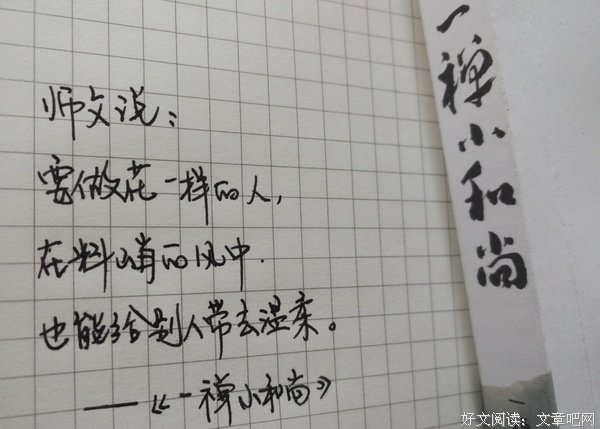 师文说：
要做花一样的人，
在料峭的风中.
也能给别人带去温柔。
——《一禅小和尚》
一禅小和尚
好文阅读：文章吧网